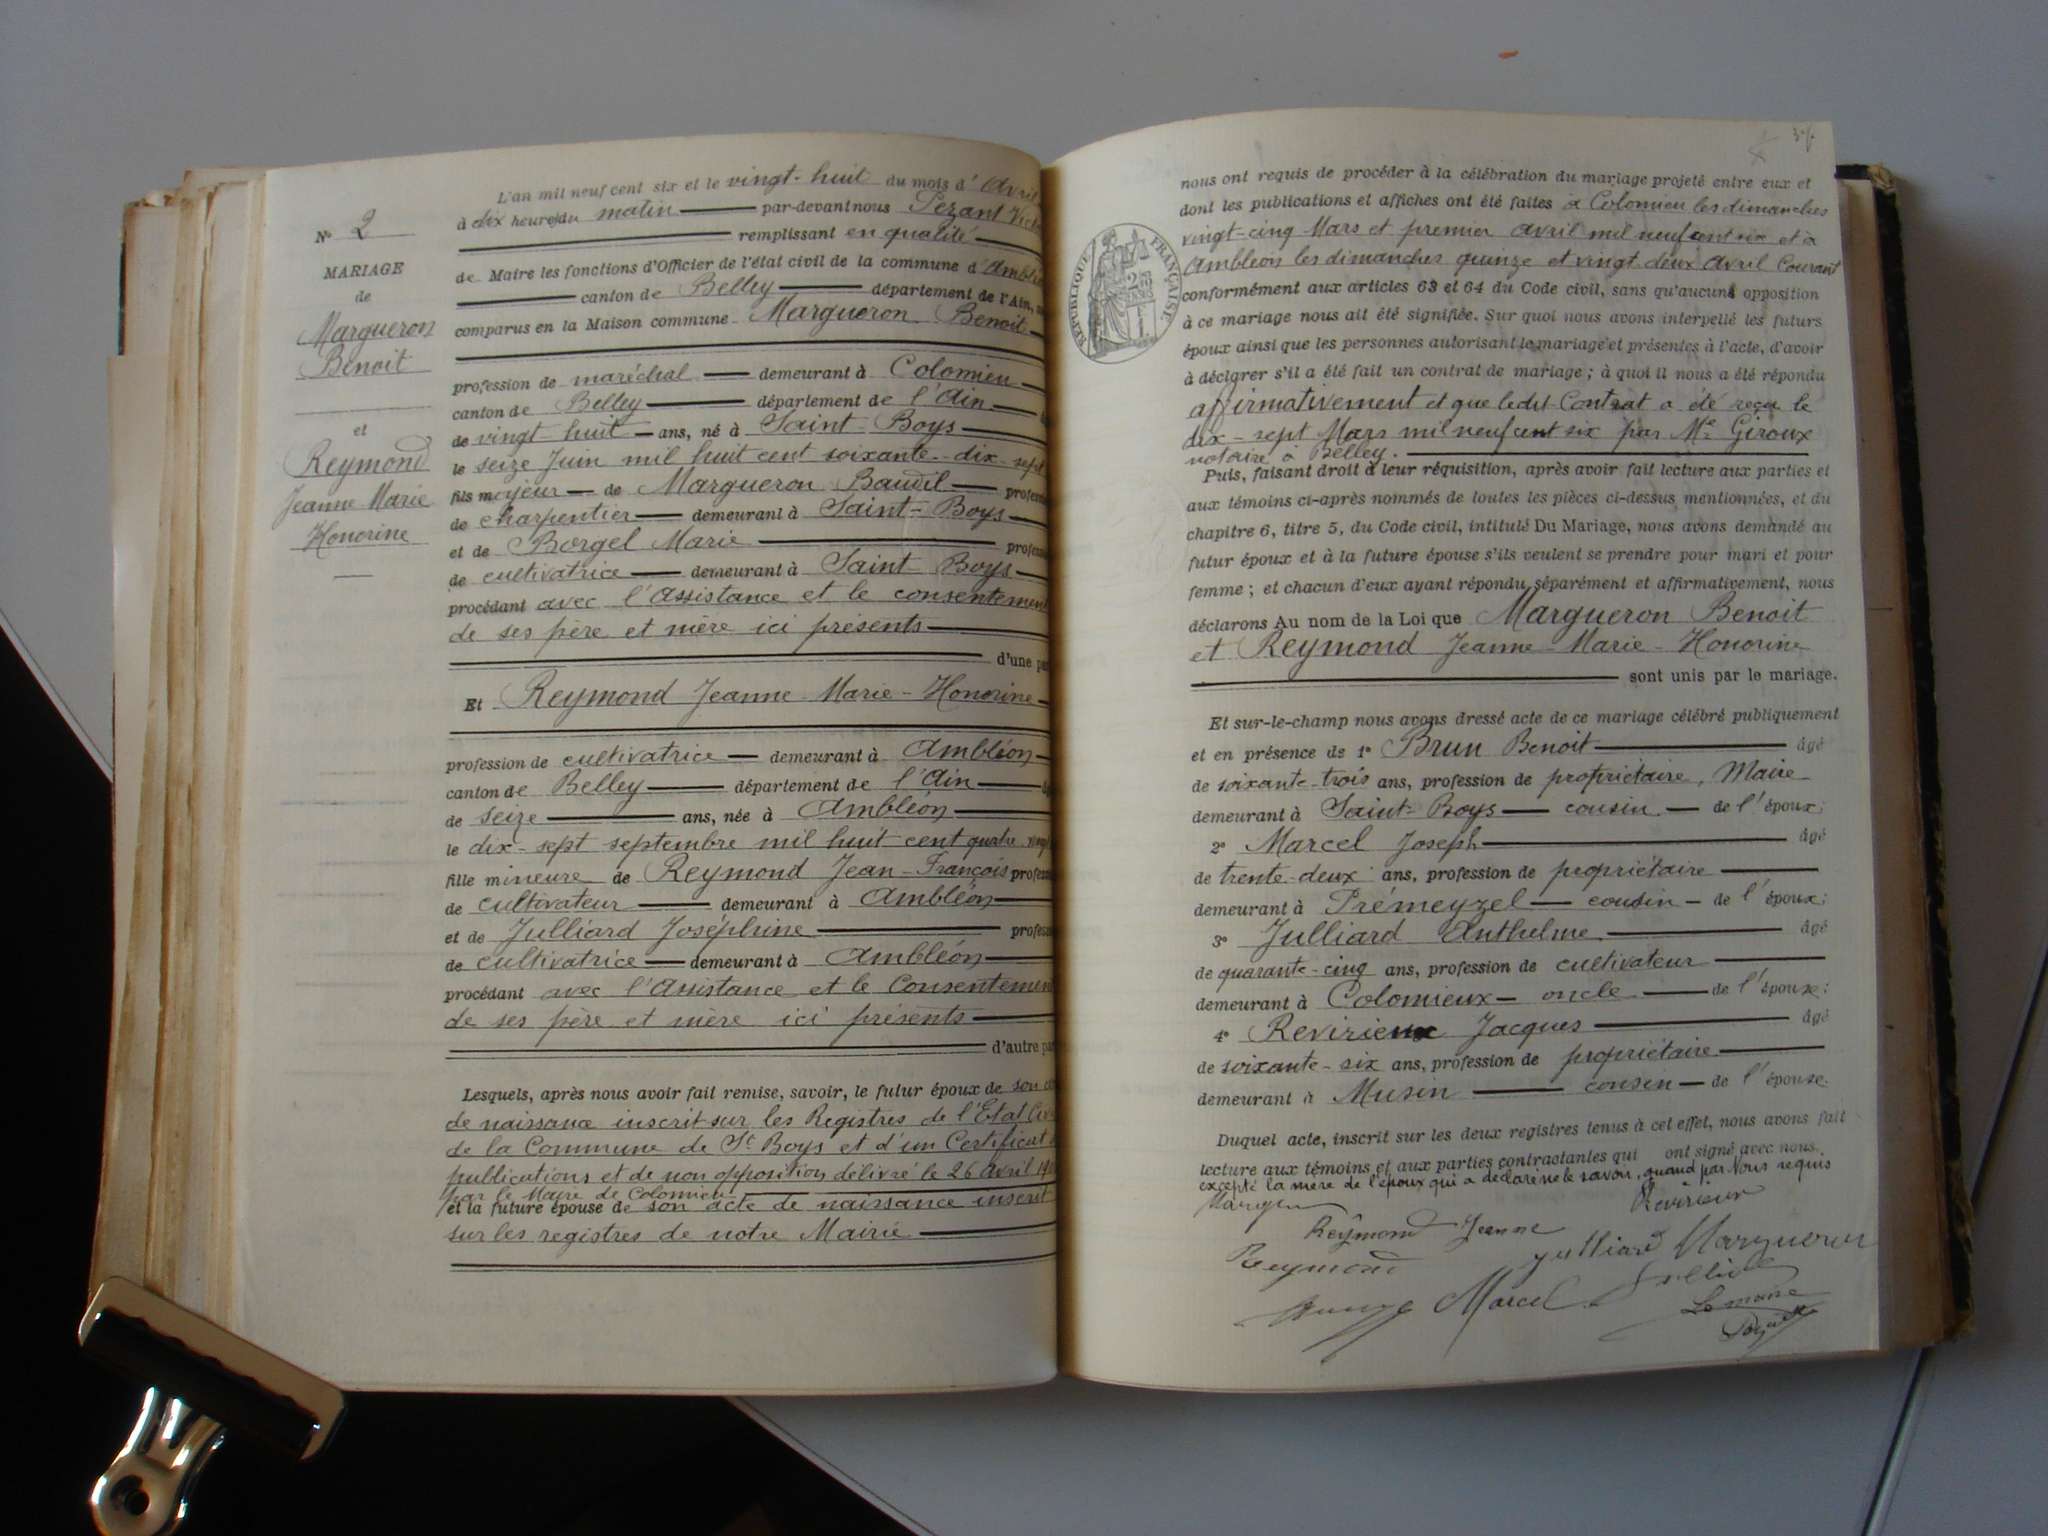 L'an mil neuf cent six et le vingt-huit du mois d' Avril
à dix heures du matin par-devant nous Pezant
N° 2
remplissant en qualité
MARIAGE
de Maire les fonctions d'Officier de l'état civil de la commune d'
de
canton de Belley département de l'Ain,
Margueron
comparus en la Maison commune Margueron Benoit
Benoit
profession de maréchal demeurant à Colomieu
canton de Belley département de l'Ain
et
de vingt-huit ans, né à Saint-Boys
Reymond
le seize Juin mil huit cent soixante-dix-sept
Jeanne Marie
fils majeur de Margueron Baudil
Honorine
de charpentier demeurant à Saint-Boys
et de Borgel Marie
de cultivatrice demeurant à Saint-Boys
procédant avec l'Assistance et le consentement
de ses père et mère ici présents
d'une
Et Reymond Jeanne-Marie-Honorine
profession de cultivatrice demeurant à Ambléon
canton de Belley département de l'Ain
de seize ans, née à Ambléon
le dix-sept septembre mil huit cent quatre
fille mineure de Reymond Jean-François
de cultivateur demeurant à Ambléon
et de Julliard Joséphine
de cultivatrice demeurant à Ambléon
procédant avec l'Assistance et le Consentement
de ses père et mère ici présents
d'autre
Lesquels, après nous avoir fait remise, savoir, le futur époux de son
de naissance inscrit sur les Registres de l'Etat
de la Commune de St Boys et d'un Certificat
publications et de non opposition délivré le 26 avril
par le Maire de Colomieu
et la future épouse de son acte de naissance inscrit
sur les registres de notre Mairie
nous ont requis de procéder à la célébration du mariage projeté entre eux et
dont les publications et affiches ont été faites à Colomieu les dimanches
vingt-cinq Mars et premier avril mil neuf cent six et à
Ambléon les dimanches quinze et vingt deux Avril Courant
RÉPUBLIQUE FRANÇAISE
conformément aux articles 63 et 64 du Code civil, sans qu'aucune opposition
à ce mariage nous ait été signifiée. Sur quoi nous avons interpellé les futurs
époux ainsi que les personnes autorisant le mariage et présentes à l'acte, d'avoir
à déclarer s'il a été fait un contrat de mariage ; à quoi il nous a été répondu
affirmativement et que ledit Contrat a été reçu le
dix-sept Mars mil neuf cent six par Me Giroux
notaire à Belley.
Puis, faisant droit à leur réquisition, après avoir fait lecture aux parties et
aux témoins ci-après nommés de toutes les pièces ci-dessus mentionnées, et du
chapitre 6, titre 5, du Code civil, intitulé Du Mariage, nous avons demandé au
futur époux et à la future épouse s'ils veulent se prendre pour mari et pour
femme ; et chacun d'eux ayant répondu séparément et affirmativement, nous
déclarons Au nom de la Loi que Margueron Benoit
et Reymond Jeanne-Marie-Honorine
sont unis par le mariage.
Et sur-le-champ nous avons dressé acte de ce mariage célébré publiquement
et en présence de 1° Brun Benoit âgé
de soixante-trois ans, profession de propriétaire, Maire
demeurant à Saint-Boys cousin de l'époux ;
2° Marcel Joseph âgé
de trente-deux ans, profession de propriétaire
demeurant à Prémeyzel cousin de l'époux ;
3° Julliard Anthelme âgé
de quarante-cinq ans, profession de cultivateur
demeurant à Colomieux oncle de l'épouse ;
4° Revirieux Jacques âgé
de soixante-six ans, profession de propriétaire
demeurant à Musin cousin de l'épouse.
Duquel acte, inscrit sur les deux registres tenus à cet effet, nous avons fait
lecture aux témoins et aux parties contractantes qui ont signé avec nous.
excepté la mère de l'époux qui a déclaré ne le savoir, quand par Nous requis
Revirieux
Reymond Jeanne
Reymond Julliard Margueron
Marcel
Le maire